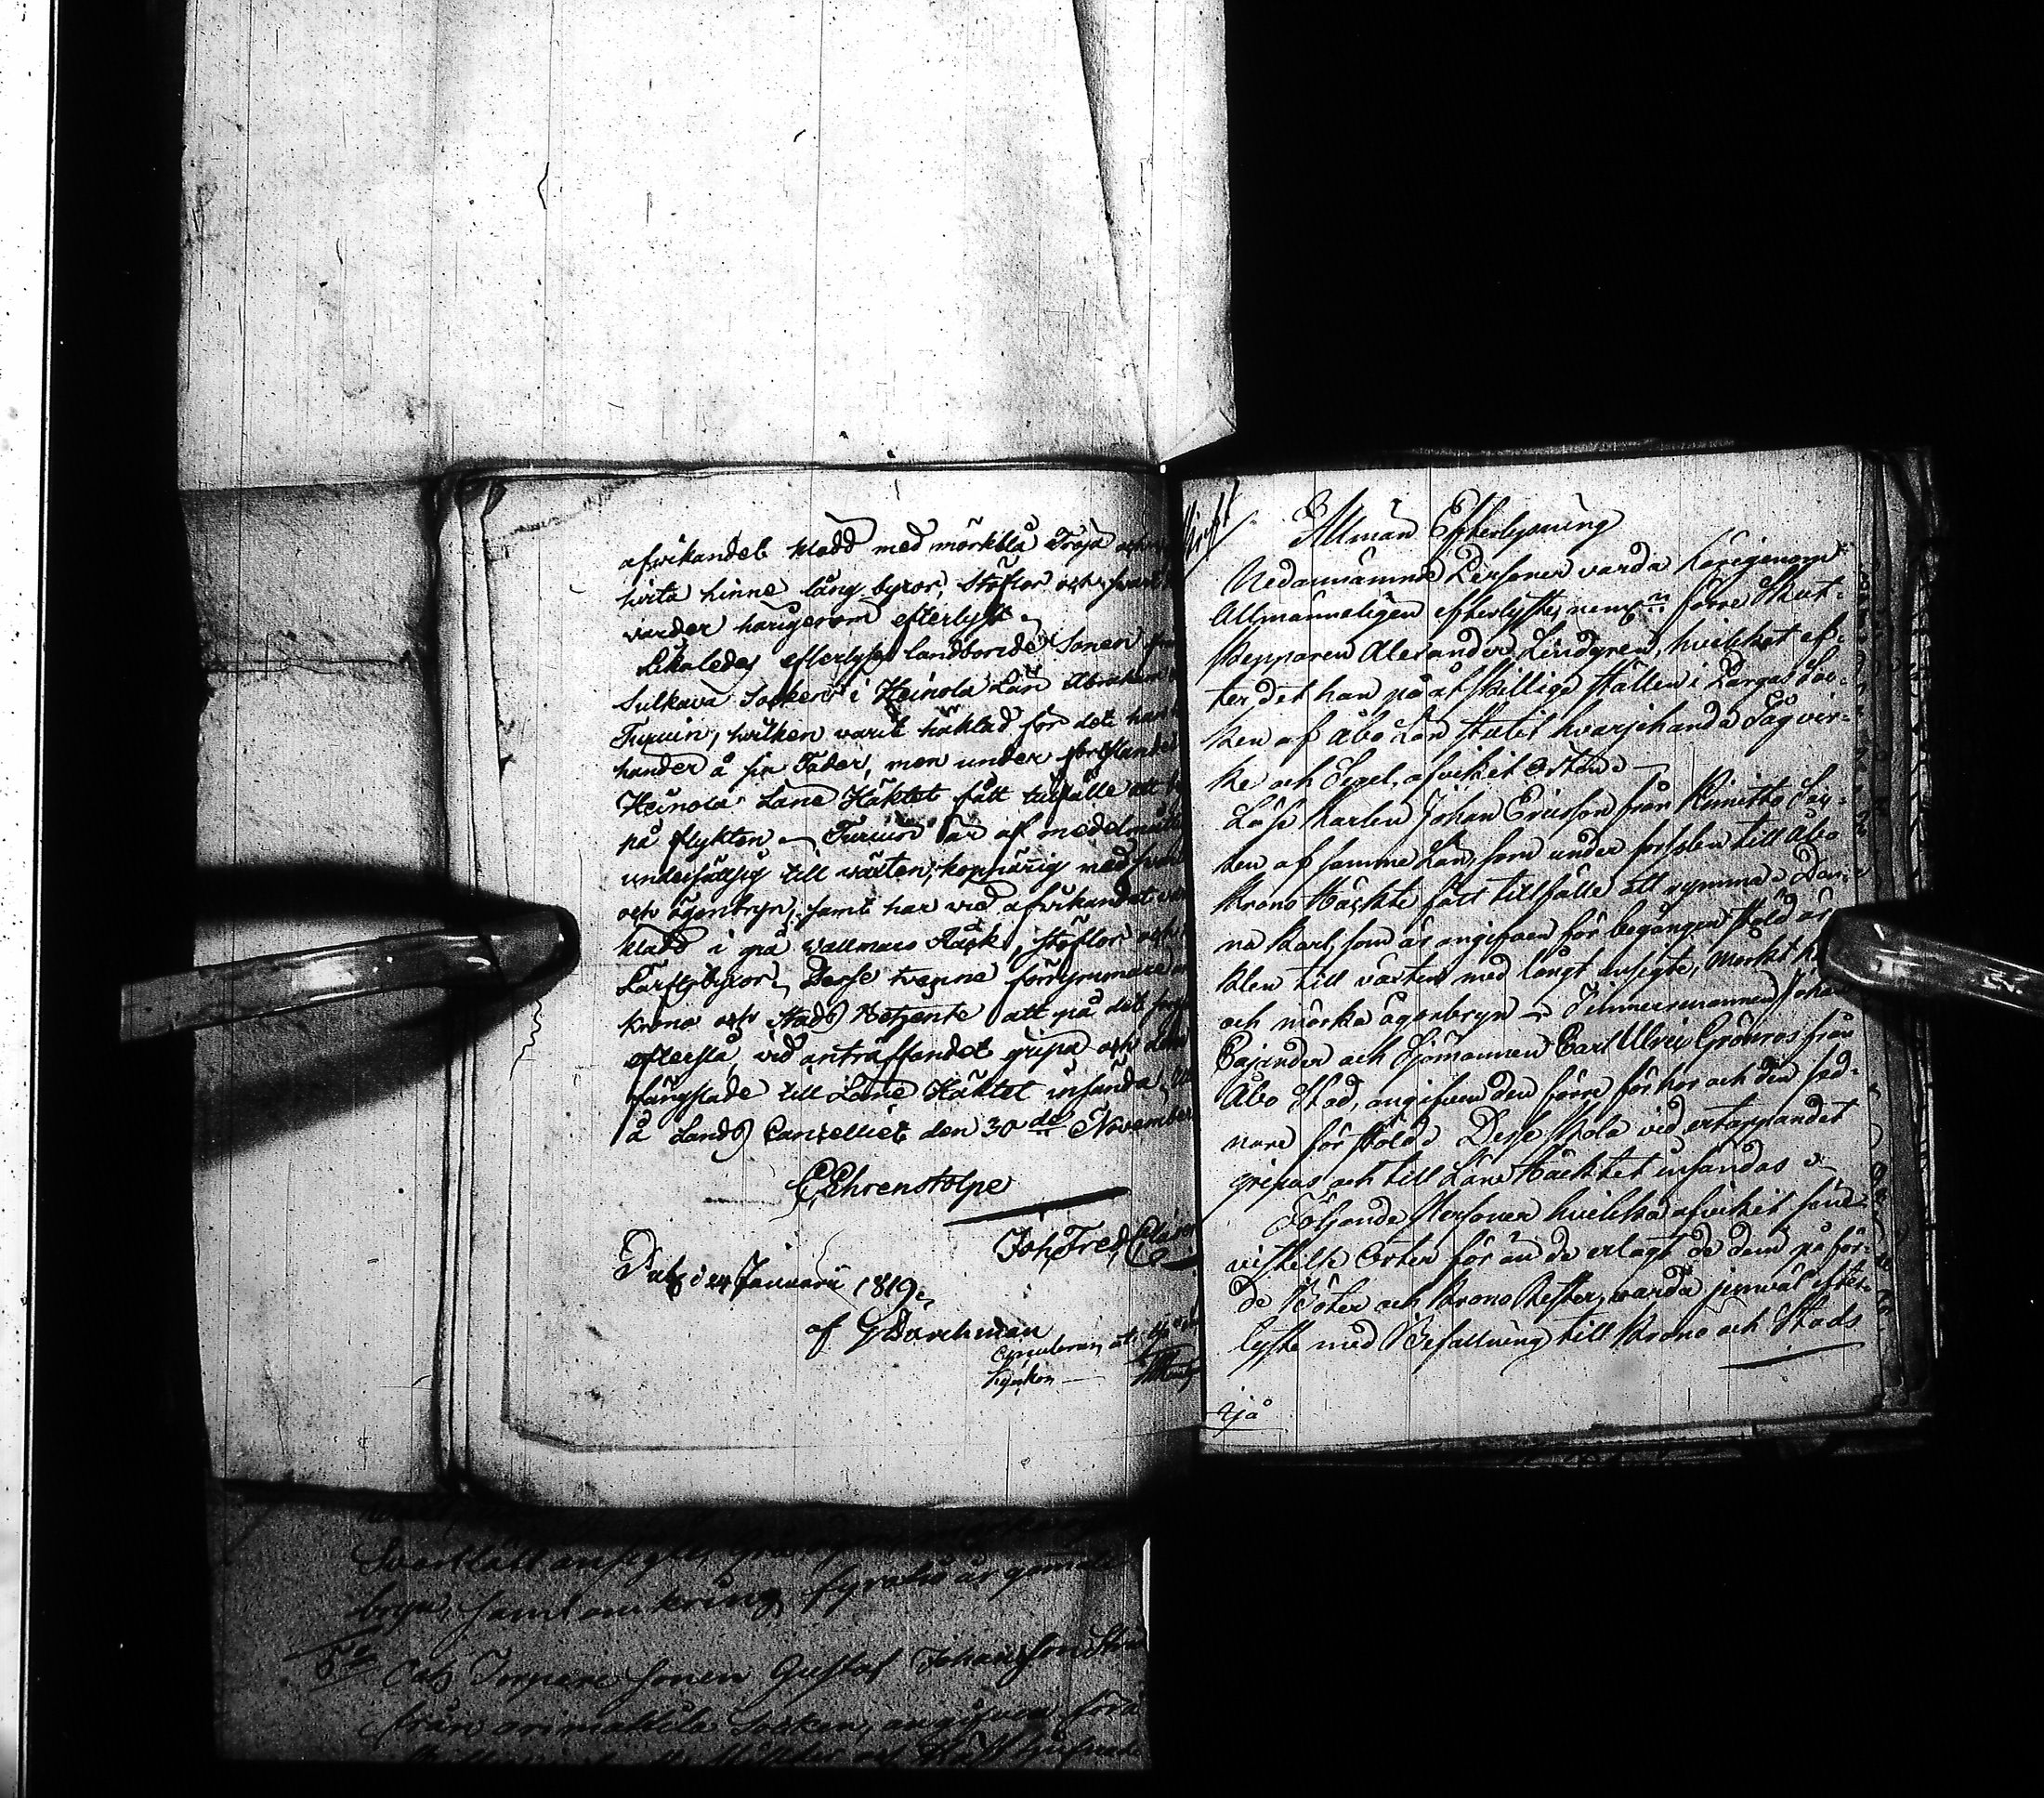 afvikandet klädd med mörkblå Tröja och
hvita linne lång byxor, Stöflor och svart
varder härigenom efterlyst.
Likaledes efterlyses landbonde Sonen
Sulkava Socken i Heinola Län Abraham
Turuin, hvilken varit häktad för det han
händer å sin Fader, men under
Heinola Läns Häktet fått tillfälle att
på flykten Turuin är af medelmåttig
undersättsig till växten, koppärrig med
och ögonbryn, samt har vid afvikandet
klädd i grå Vallmars Råck, Stöflor och
Lärftsbyxor, Desse tvenne förrymmare
krono och Stads Betjente att på det
efterslå, vid anträffandet gripa och
fängslade till Läns Häktet insända,
å Lands Cancelliet den 30de November
C Ehrenstolpe
Joh Fred
Pub. d 24 Januarii 1819.
af G Barckman
Circulerar
kyrkan
Allmän Efterlysning
Nedannämnde Personer varda härigenom
Allmänneligen efterlyste, neml: förre Skut-
skepparen Alexander Lindgren, hvilket ef-
ter det han på åtskillige ställen i Pargas Soc-
ken af Åbo Län stulit hvarjehanda Tågvir-
ke och Segel, afvikit Orten
Löse Karlen Johan Ericsson från Kimitto Soc-
ken af samma Län, som under forslen till Åbo
Krono Häckte fått tillfälle att rymma Den-
na Karl, som är angifven för begången stöld är
klen till växten med långt ansigte, mörkt
och mörka ögonbryn Timmermannen Johan
Cajander och Sjömannen Carl Ulric Grönros från
Åbo Stad, angifven den förre för hor och den sed-
nare för stöld Desse skola vid ertappandet
gripas och till Läns Häcktet insändas
Följande Personer hvilka afvikit sine
vistelse Orter för än de erlagt de dem på för-
de Böter och Krono Rester, warda jemväl efter-
lyste med Befallning till Krono och Stads
tjä
Svartlätt ansigte,
bryn, samt omkring fyratio år gammal
5o Torpare Sonen Gustaf Johansson
från Orimattila Socken, angifven för